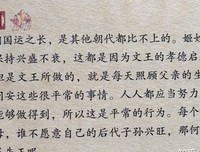 国运之长，是其他朝代都比不上的。姬
持兴盛不衰，这都是因为文王的孝德启
但是文王所做的，就是每天照顾父亲的生
问安这些很平常的事情。人人都应当努力
能够做得到，所以这是平常的行为。每个
，谁不愿意自己的后代子孙兴旺，那何